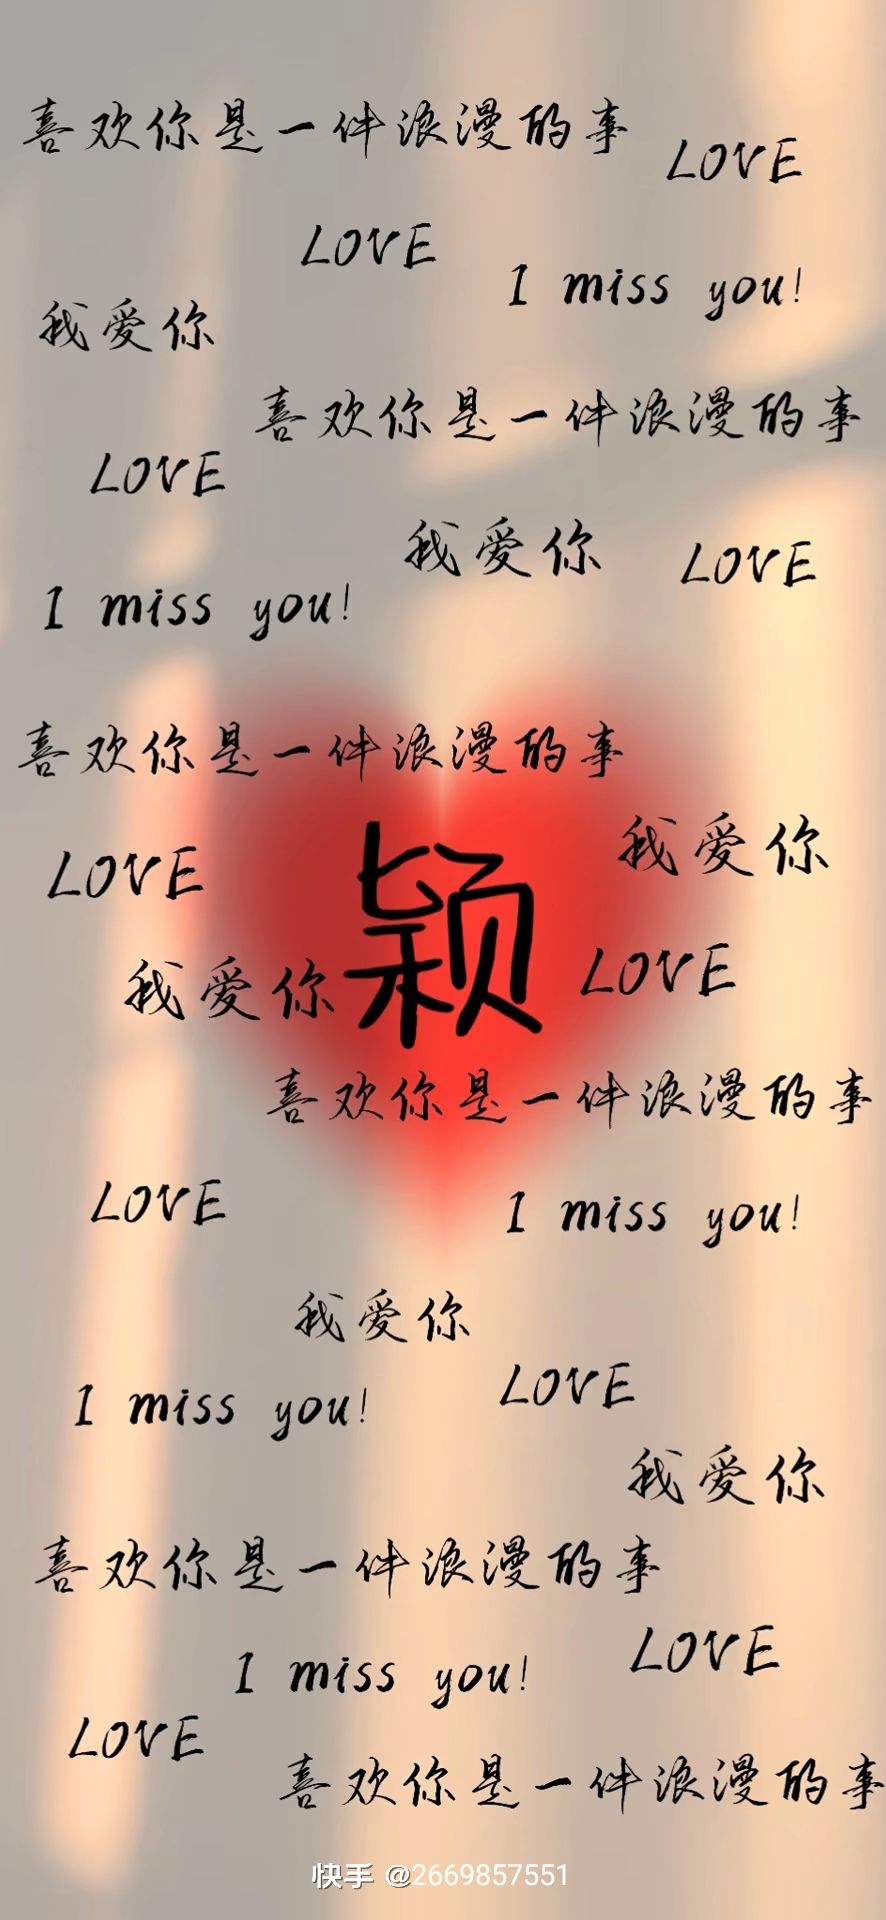 喜欢你是一件浪漫的事
LOVE
LOVE
I miss you!
我爱你
喜欢你是一件浪漫的事
LOVE
我爱你
LOVE
I miss you!
喜欢你是一件浪漫的事
我爱你
LOVE
颖
我爱你
LOVE
喜欢你是一件浪漫的事
LOVE
I miss you!
我爱你
LOVE
I miss you!
我爱你
喜欢你是一件浪漫的事
LOVE
I miss you!
LOVE
喜欢你是一件浪漫的事
快手 @2669857551